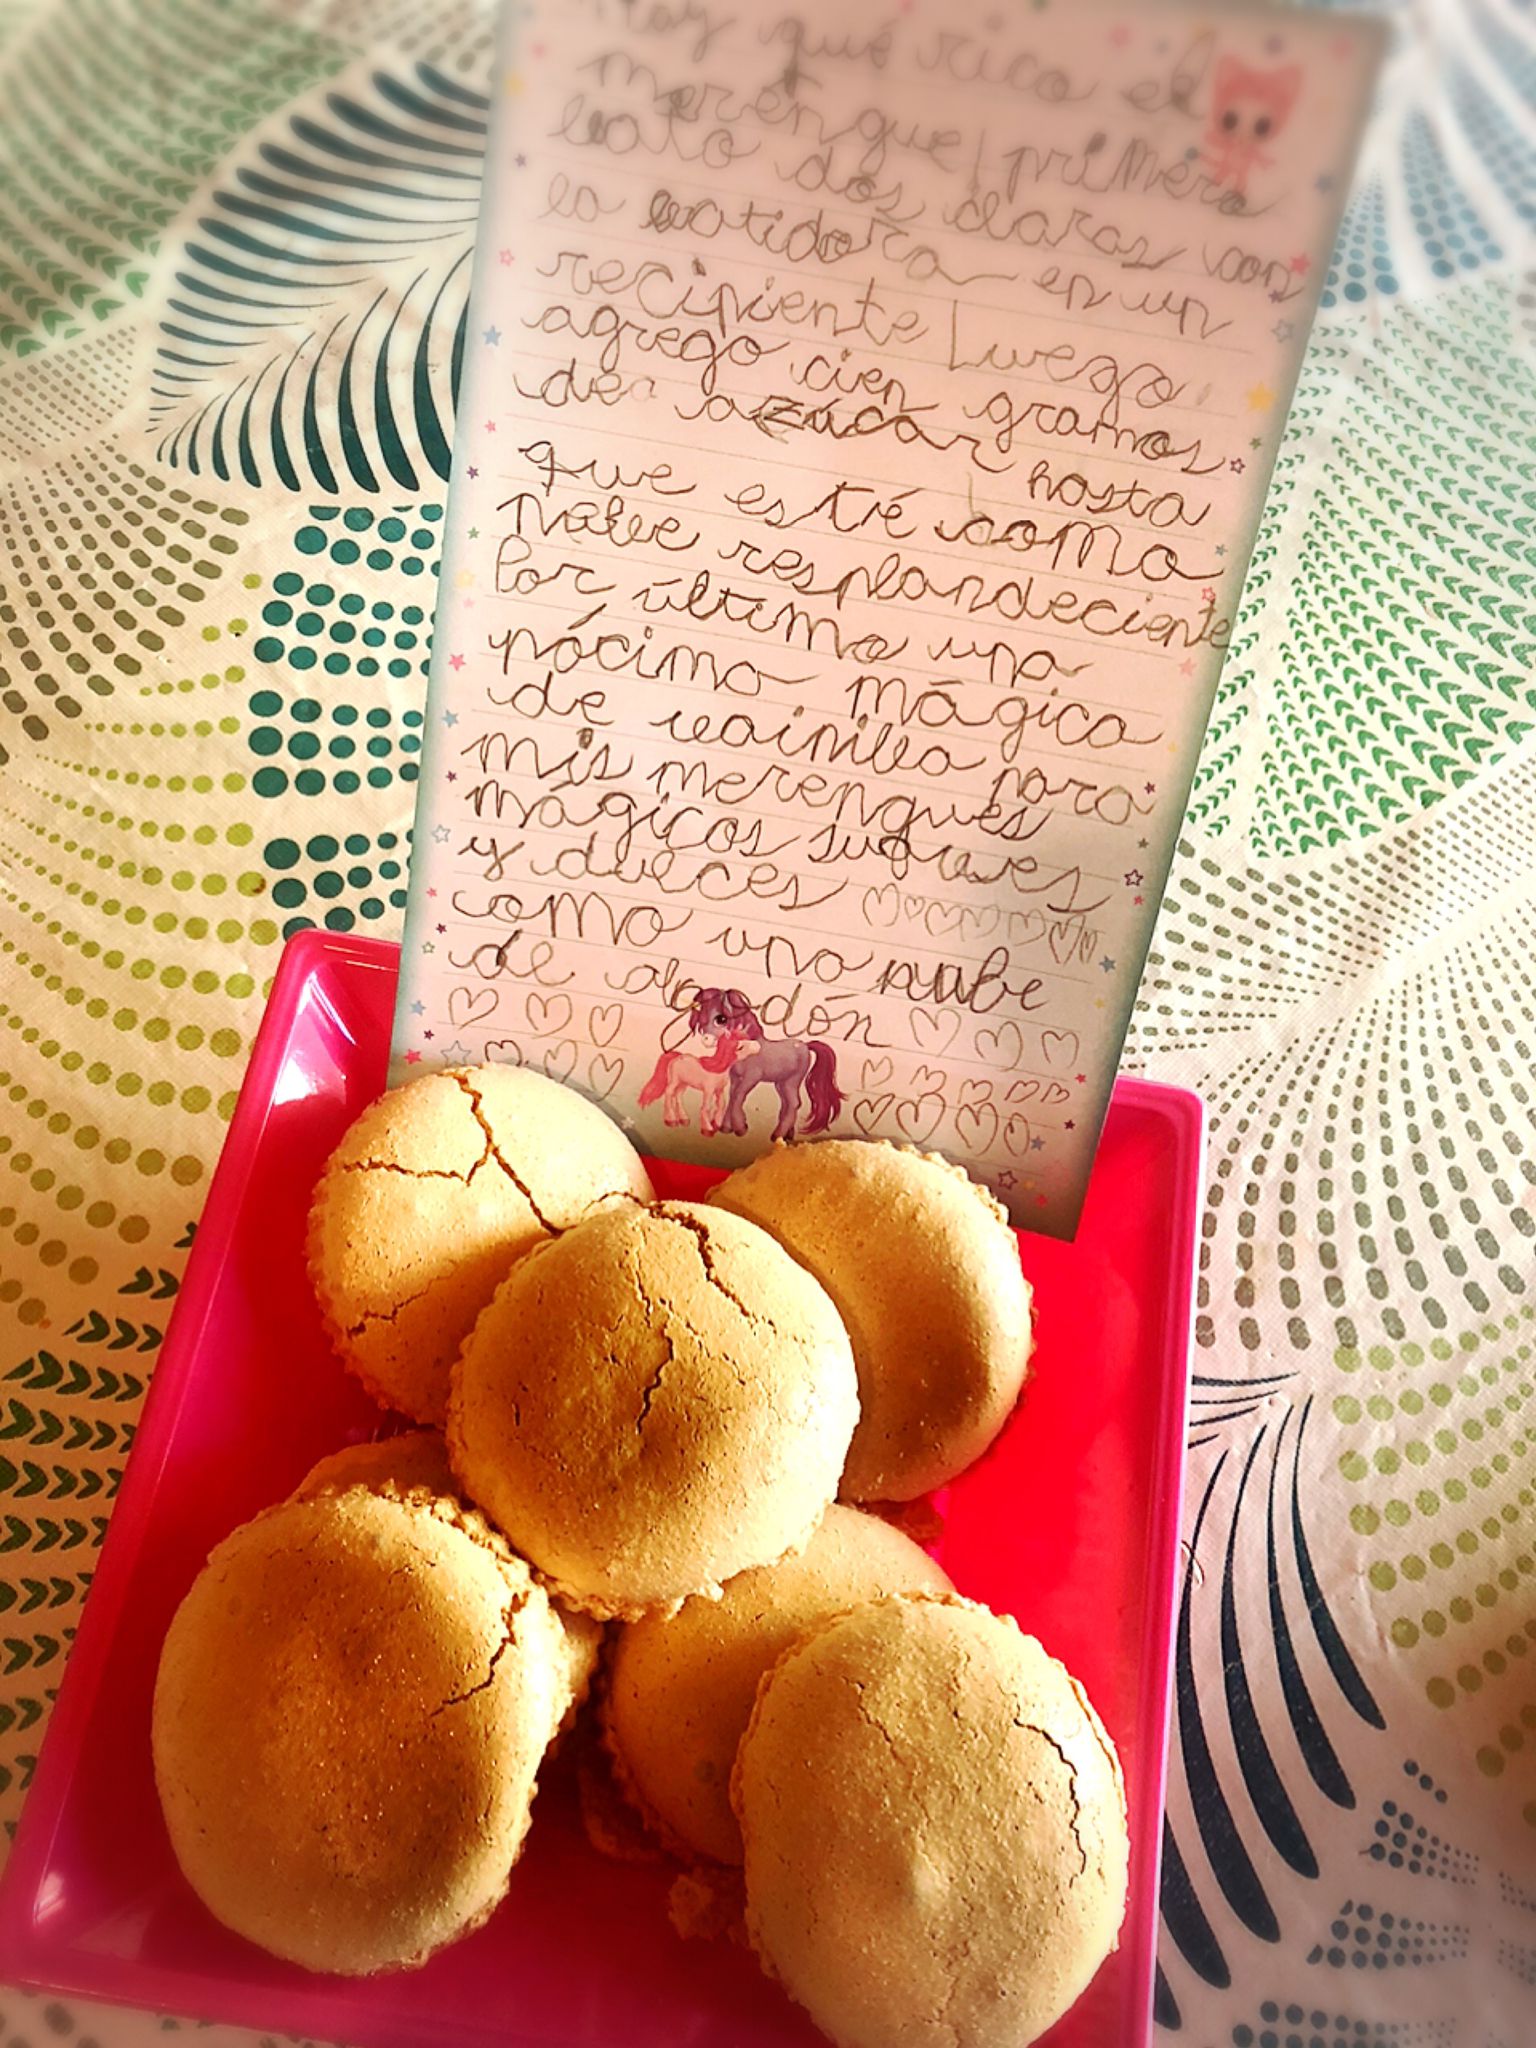 Hay qué rico el
merengue primero
bato dos claras con
la batidora en un
recipiente luego
agrego cien gramos
de azúcar hasta
que esté como
nube resplandeciente
Por último una
pócima mágica
de vainilla para
mis merengues
mágicos suaves
y dulces
como una nube
de algodón